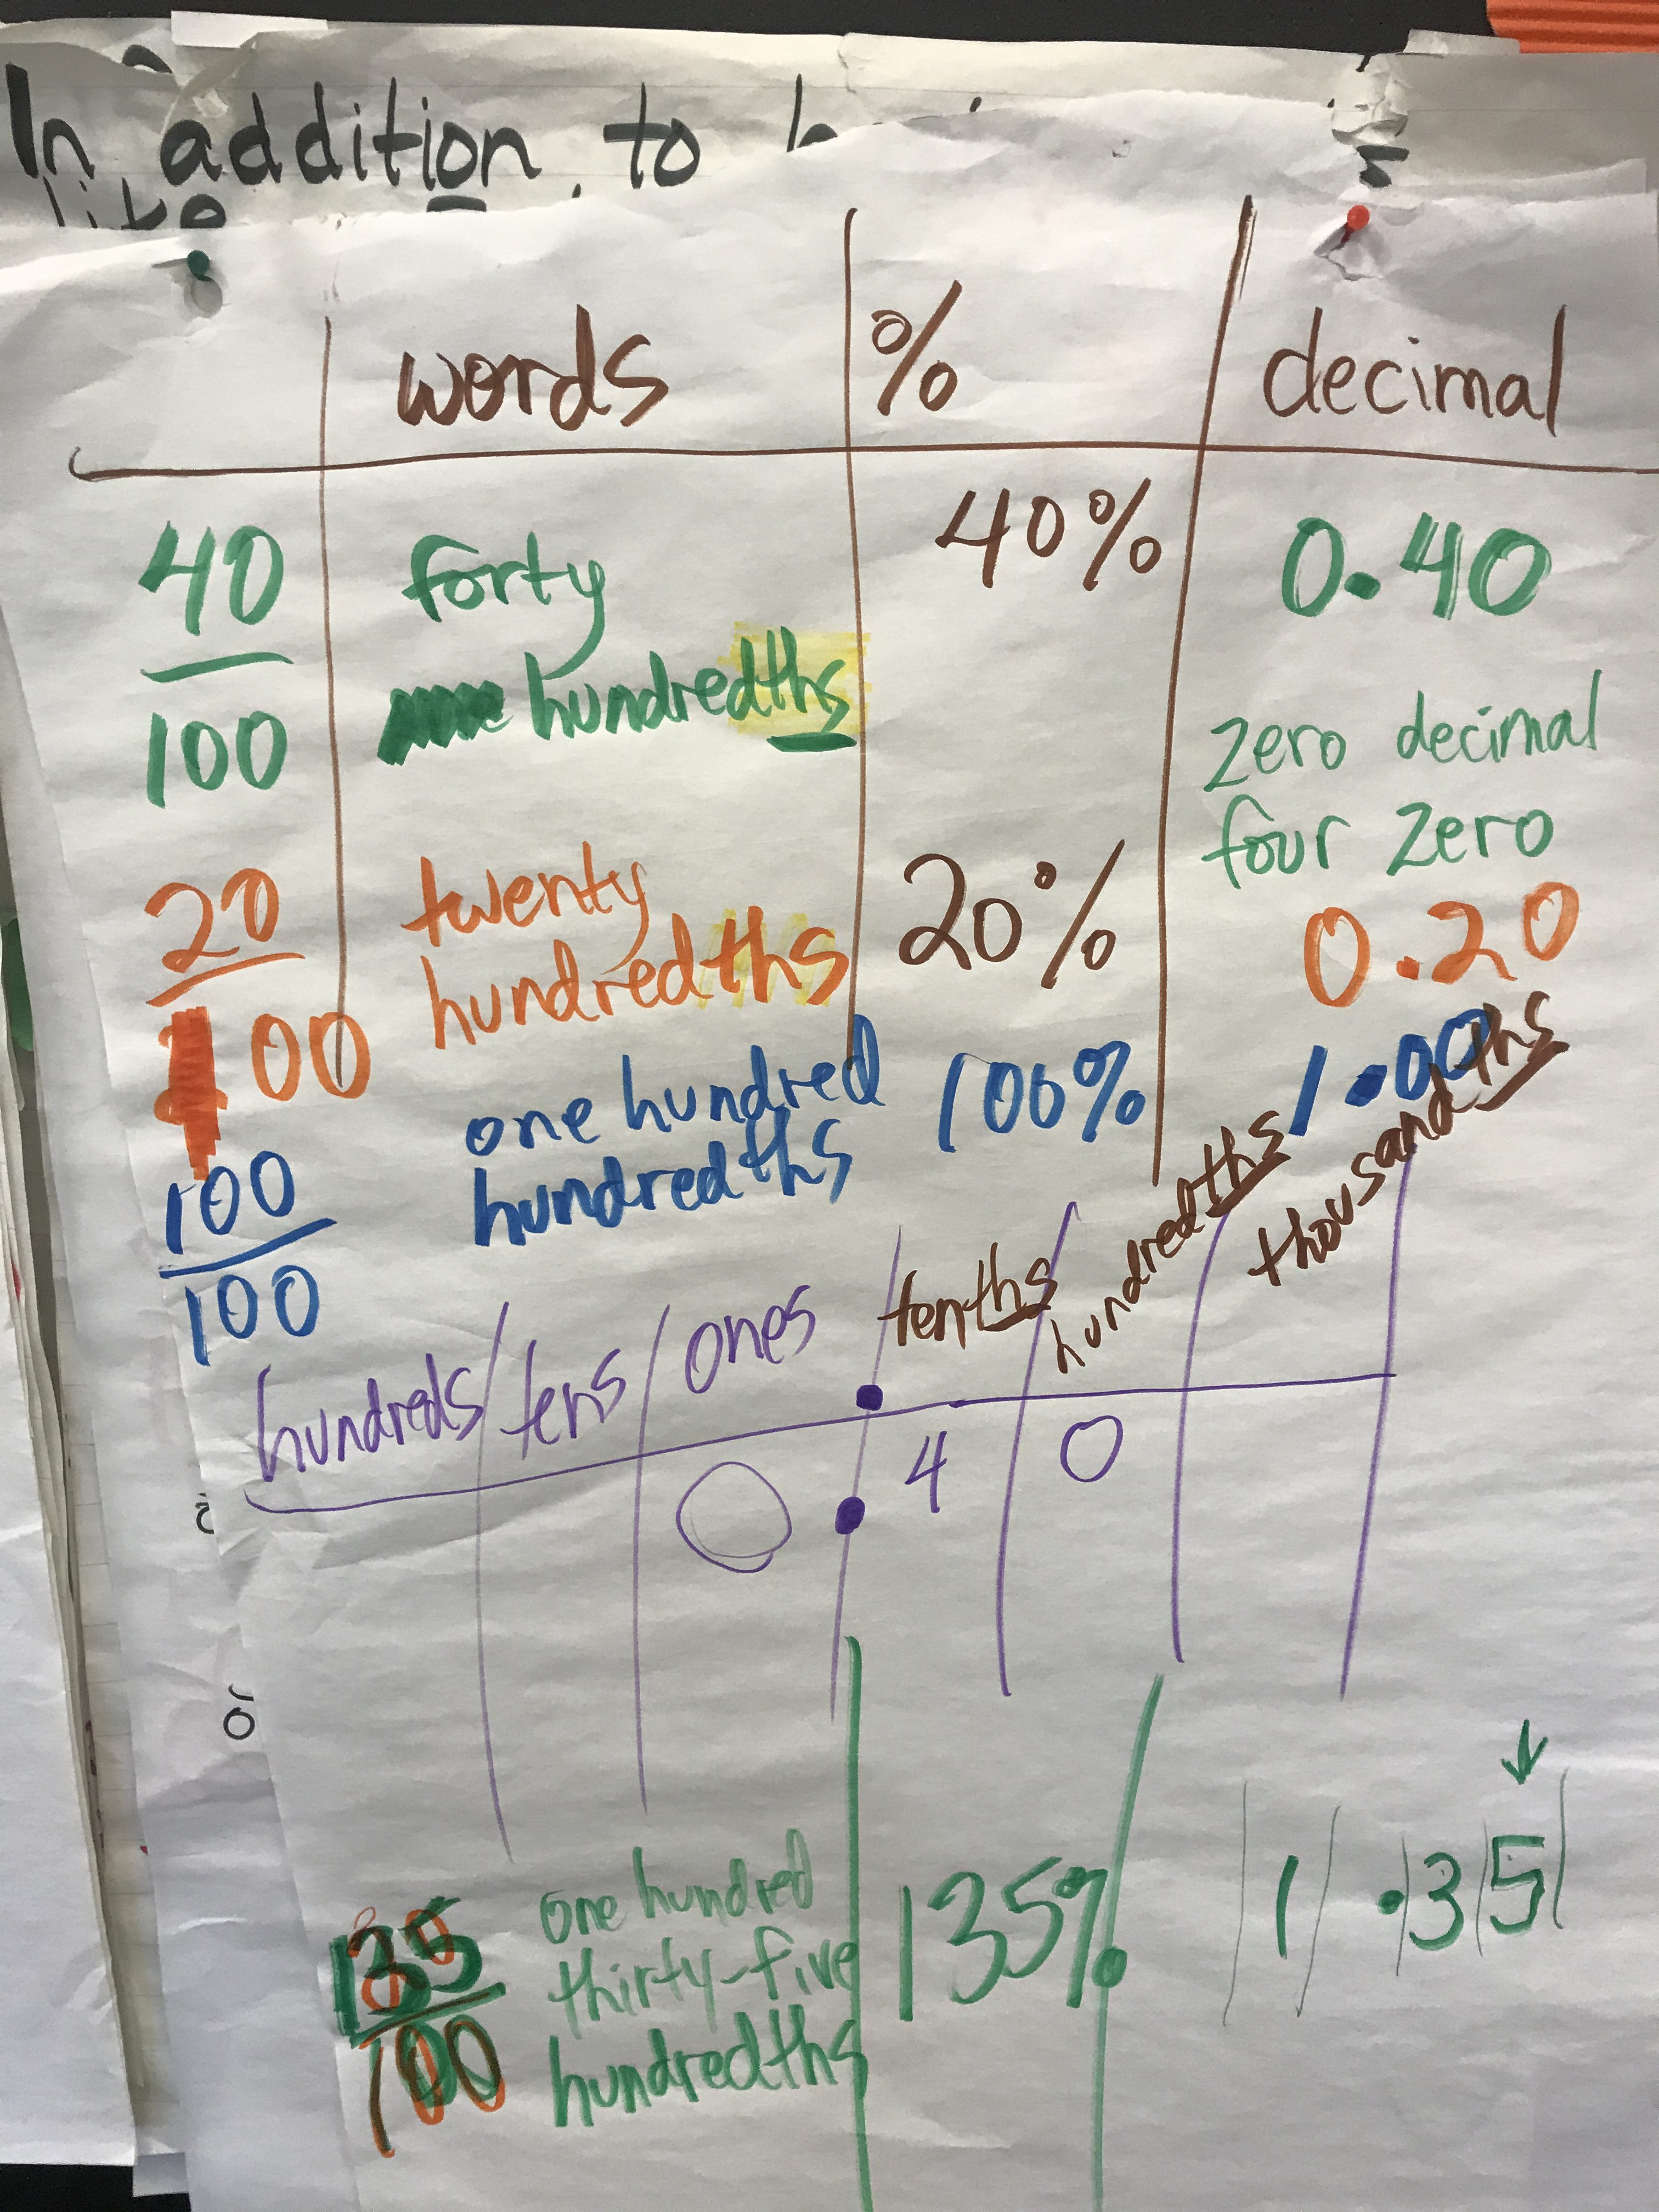 In addition, to
like
words % decimal
40/100 forty hundredths 40% 0.40
zero decimal
four zero
20/100 twenty hundredths 20% 0.20
100/100 one hundred hundredths 100% 1.00
hundreds tens ones . tenths hundredths thousandths
0 . 4 0
10
135/100 one hundred thirty-five hundredths 135% 1.35